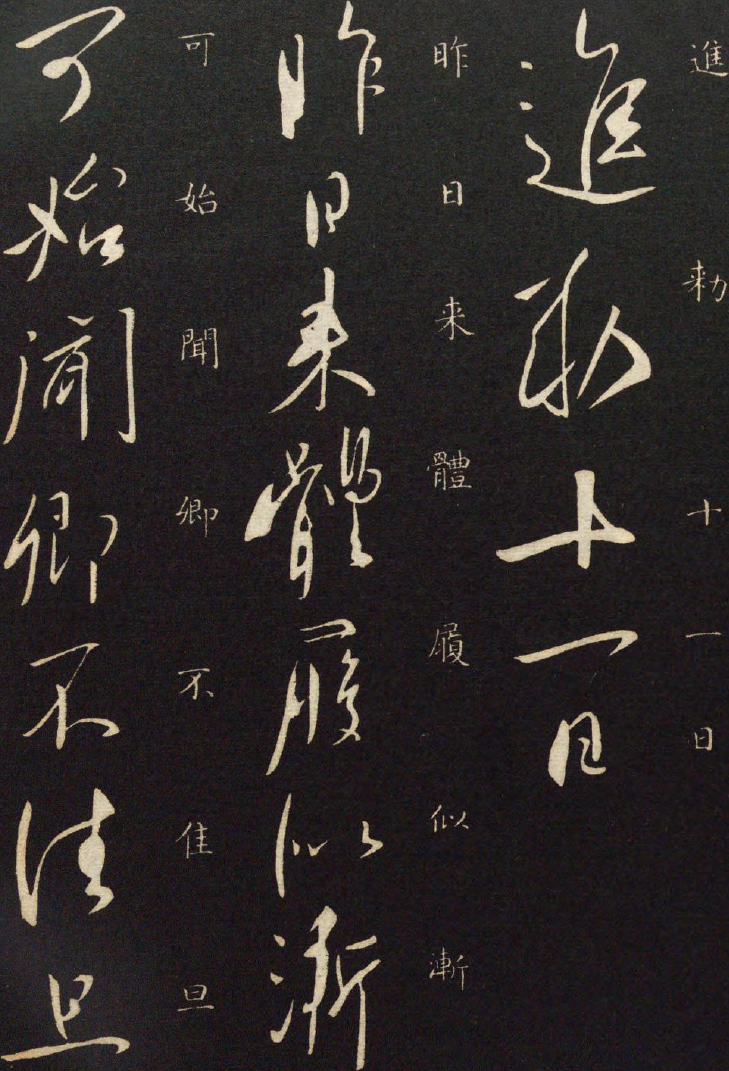 進
勑
十
一
日
進勑十一日
昨
日
来
體
履
似
漸
昨日来體履似漸
可
始
聞
卿
不
佳
旦
可始聞卿不佳旦